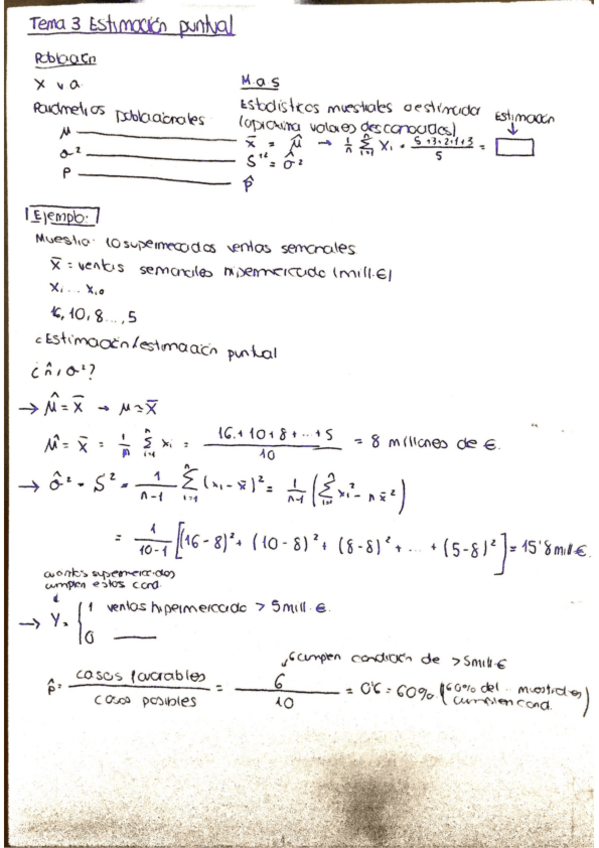 Tema 3 Estimación puntual
Población
X v.a. M.a.s
Parámetros poblacionales Estadísticos muestrales o estimada Estimación
(aproxima valores desconocidos) ↓
μ x̄ = μ̂ → 1/n Σ(i=1..n) Xi = (5+3+2+1+3)/5 =
σ² S'² = σ̂²
P p̂
Ejemplo:
Muestra: 10 supermercados ventas semanales
x̄ = ventas semanales hipermercado (mill.€)
X1 ... X10
16, 10, 8 ..., 5
c Estimación/estimación puntual
¿ , σ²?
→ μ̂ = x̄ → μ ≃ x̄
μ̂ = x̄ = 1/n Σ(i=1..n) xi = (16+10+8+...+5)/10 = 8 millones de €.
→ σ̂² = S² = 1/(n-1) Σ(i=1..n) (xi - x̄)² = 1/(n-1) (Σ(i=1..n) xi² - n x̄²)
= 1/(10-1) [(16-8)² + (10-8)² + (8-8)² + ... + (5-8)²] = 15'8 mill €.
cuantos supermercados
cumplen estas cond.
→ Y = { 1 ventas hipermercado > 5 mill. €.
0
6 cumplen condición de > 5 mill. €
p̂ = casos favorables / casos posibles = 6/10 = 0'6 = 60% (60% del muestrales cumplen cond.)